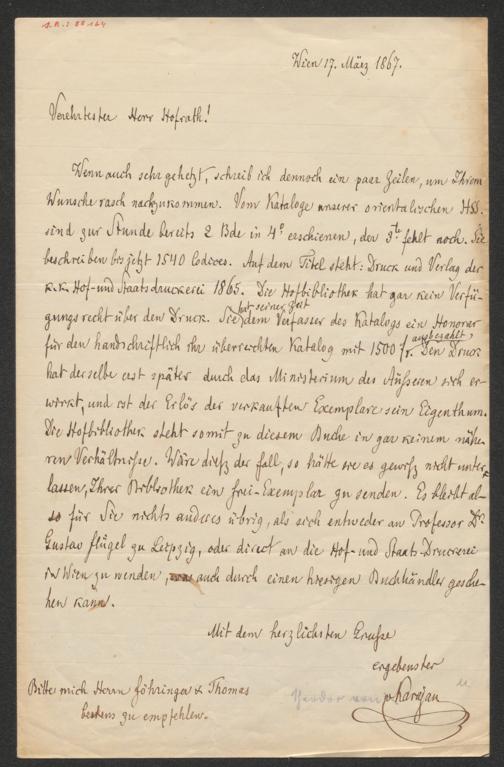 Wien 17. März 1867.
Verehrtester Herr Hofrath!
Wenn auch sehr gehetzt, schreib ich dennoch ein paar Zeilen, um Ihrem
Wunsche rasch nachzukommen. Vom Kataloge unserer orientalischen HSS.
sind zur Stunde bereits 2 Bde in 4° erschienen, der 3te fehlt noch. Sie
beschreiben bis jetzt 1540 Codices. Auf dem Titel steht: Druck und Verlag der
k.k. Hof- und Staatsdruckerei 1865. Die Hofbibliothek hat gar kein Verfü-
gungsrecht über den Druck. Sie hat seiner Zeit dem Verfasser des Katalogs ein Honorar
für den handschriftlich ihr überreichten Katalog mit 1500 fr. ausbezahlt. Den Druck
hat derselbe erst später durch das Ministerium des Äußeren sich er-
wirkt, und ist der Erlös der verkauften Exemplare sein Eigenthum.
Die Hofbibliothek steht somit zu diesem Buche in gar keinem nähe-
ren Verhältnisse. Wäre dieß der Fall, so hätte sie es gewiß nicht unter-
lassen, Ihrer Bibliothek ein frei-Exemplar zu senden. Es bleibt al-
so für Sie nichts anderes übrig, als sich entweder an Professor Dr.
Gustav Flügel zu Leipzig, oder direct an die Hof- und Staats-Druckerei
in Wien zu wenden, was auch durch einen hiesigen Buchhändler gesche-
hen kann.
Mit dem herzlichsten Gruße
ergebenster
Theodor von v Karajan
Bitte mich Herrn Föhringer & Thomas
bestens zu empfehlen.